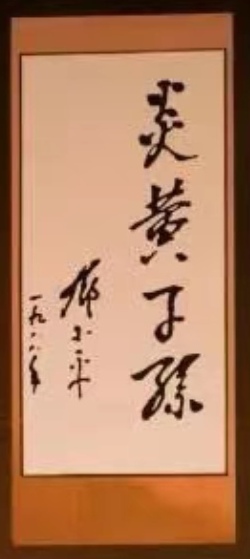 炎黄子孫
邓小平
一九八八年